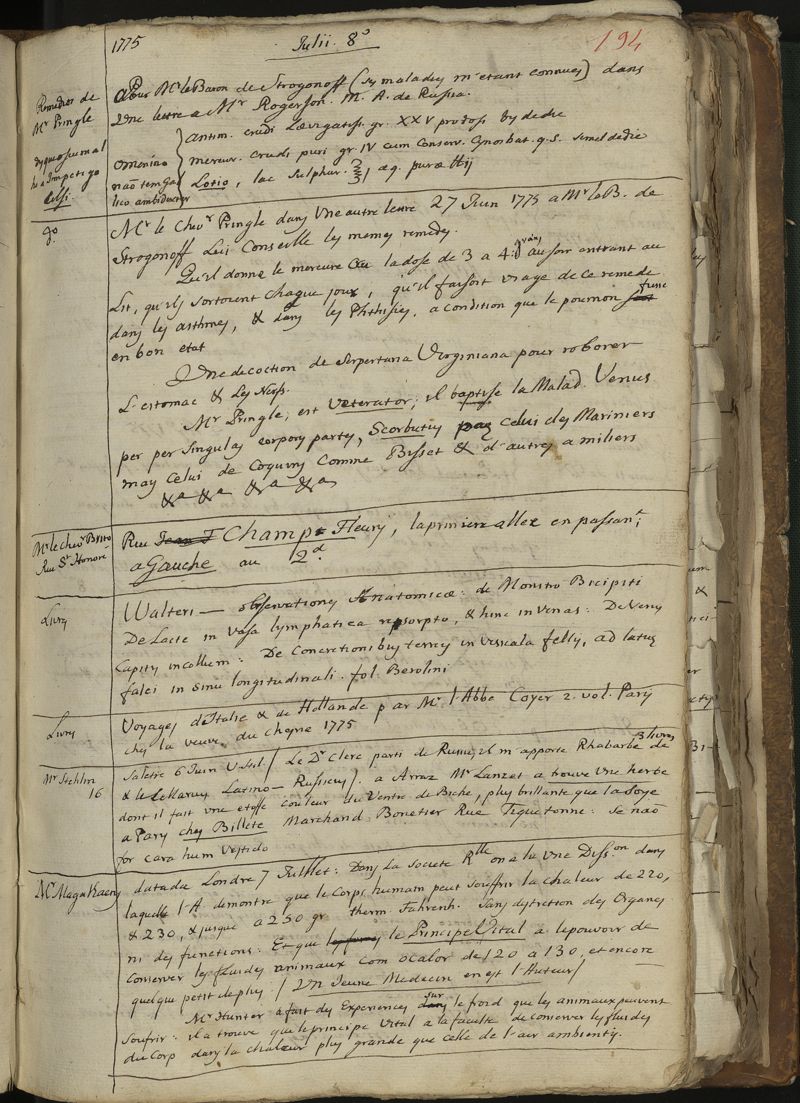 1775 Julii. 8º 194
Remedios de
Mr Pringle
Pour Mr le Baron de Strogonoff (sy maladies m'etant connues) dans
Une lettre a Mr Rogerson. M. A. de Russia.
antim. crudi Lævigatiss. gr. XXV pro dosi bis de die
mercur. crudi puri gr. IV cum Conserv. Cynosbat. q.s. semel de die
Lotio, lac Sulphur. aq. puræ
omenino
não tem Gal
lico ambiductor
dº
Mr le Chevr Pringle dans Une autre lettre 27 Juin 1775 a Mr le B. de
Strogonoff Lui Conseille les memes remedes.
Qu'il donne le mercure a la dose de 3 a 4 grains au soir entrant au
Lit, qu'ils sortoient chaque jour, qu'il faisoit usage de ce remede
dans les asthmes, & dans les Phthisies, a condition que le poumon fusse
en bon etat
Une decoction de Serpentaria Virginiana pour roborer
L'estomac & les Nerfs.
Mr Pringle, est Veterator; il baptise la Malad. Venus
per per singulas corporis partes, Scorbutus pas celui des Mariniers
mais celui de Coquins Comme Bisset & d'autres a miliers
&a &a &a &a
Mr le Chevr
Rue St Honoré
Rue Jean J Champ Fleury, la primiere allee en passant
a Gauche au 2d.
Livres
Walteri — observationes Anatomicæ: de Monstro Bicipiti
De Lacte in vasa lymphatica resorpto, & hinc in venas: De Venis
Capitis in collum: De Concretionibus terreis in vesicula fellis, ad latus
falci in sinu longitudinali. fol. Berolini
Livres
Voyages d'Italie & de Hollande par Mr l'Abbe Coyer 2. vol. Paris
chez la veuve du Chesne 1775
Mr Stehlin
16
Le Dr Clerc parti de Russie, il m'apporte Rhabarbe de
& le Cellarius Latino-Russicus). a Arraz Mr Lanzet a trouve Une herbe
dont il fait une etoffe couleur du Ventre de Biche, plus brillante que la Soye
a Paris chez Billete Marchand Bonetier Rue Tiquetonne: Se não
for cara hum Vestido
datada Londre 7 Juillet: Dans la Societe Rlle on a lu Une Disson dans
laquelle l'A. demontre que le Corps humain peut souffrir la chaleur de 220,
& 230, & jusque a 250 gr therm. Fahrenh. Sans destretion des Organes
ni des functions: Et que le Principe Vital a le pouvoir de
Conserver les fluides animaux com o calor de 120 a 130, et encore
quelque petit de plus / Un Jeune Medecin en est l'Auteur/
Mr Hunter a fait des Experiences sur le froid que les animaux peuvent
Soufrir: il a trouve que le principe Vital a la faculté de conserver les fluides
du Corp dans la chaleur plus grande que celle de l'air ambients.